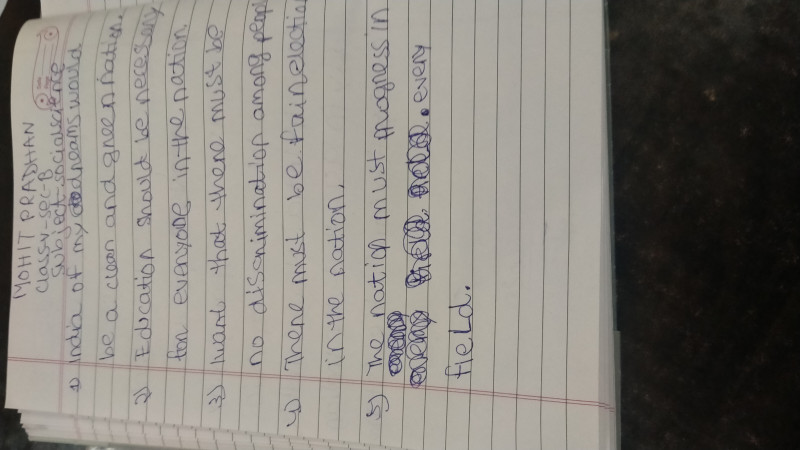 MOHIT PRADHAN
Class V-sec-B
Subject-socialscience
1) India of my dreams would
be a clean and green nation.
2) Education should be necessary
for everyone in the nation.
3) I want that there must be
no discrimination among peopl
4) There must be fair electio
in the nation.
5) The nation must progress in
every
field.